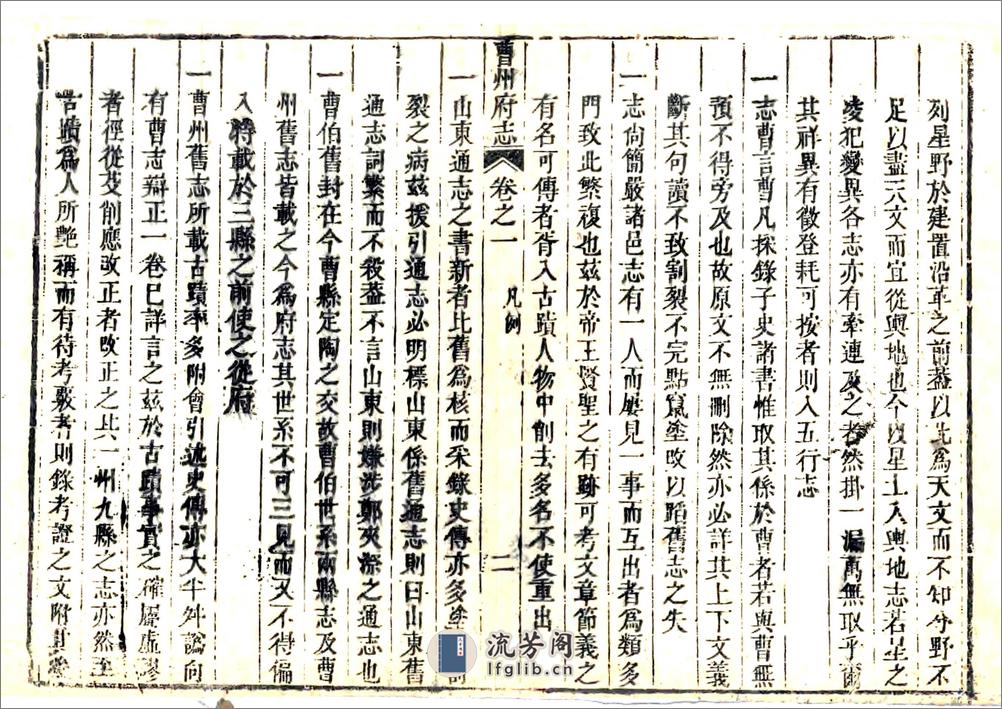 列星野於建置沿革之前蓋以此為天文而不知分野不
足以盡天文而宜從輿地也今以星土入輿地志若星之
凌犯變異各志亦有牽連及之者然掛一漏萬無取乎爾
其祥異有徵登耗可按者則入五行志
一志曹言曹凡採錄子史諸書惟取其係於曹者若與曹無
預不得旁及也故原文不無刪除然亦必詳其上下文義
斷其句讀不致割裂不完點竄塗改以蹈舊志之失
一志尚簡嚴諸邑志有一人而屢見一事而互出者為類多
門致此繁複也茲於帝王賢聖之有跡可考文章節義之
有名可傳者胥入古蹟人物中削去多名不使重出
曹州府志 卷之一 凡例 二
一山東通志之書新者比舊為核而采錄史傳亦多塗
裂之病茲援引通志必明標山東係舊通志則曰山東舊
通志詞繁而不殺葢不言山東則嫌涉鄭夾漈之通志也
一曹伯舊封在今曹縣定陶之交故曹伯世系兩縣志及曹
州舊志皆載之今為府志其世系不可三見而又不得偏
入將載於三縣之前使之從府
一曹州舊志所載古蹟率多附會引述史傳亦大半舛譌向
有曹志辯正一卷巳詳言之茲於古蹟事實之確鑿虛謬
者徑從芟削應改正者改正之其一州九縣之志亦然至
古蹟為人所艷稱而有待考覈者則錄考證之文附其
流芳阁
lfglib.cn